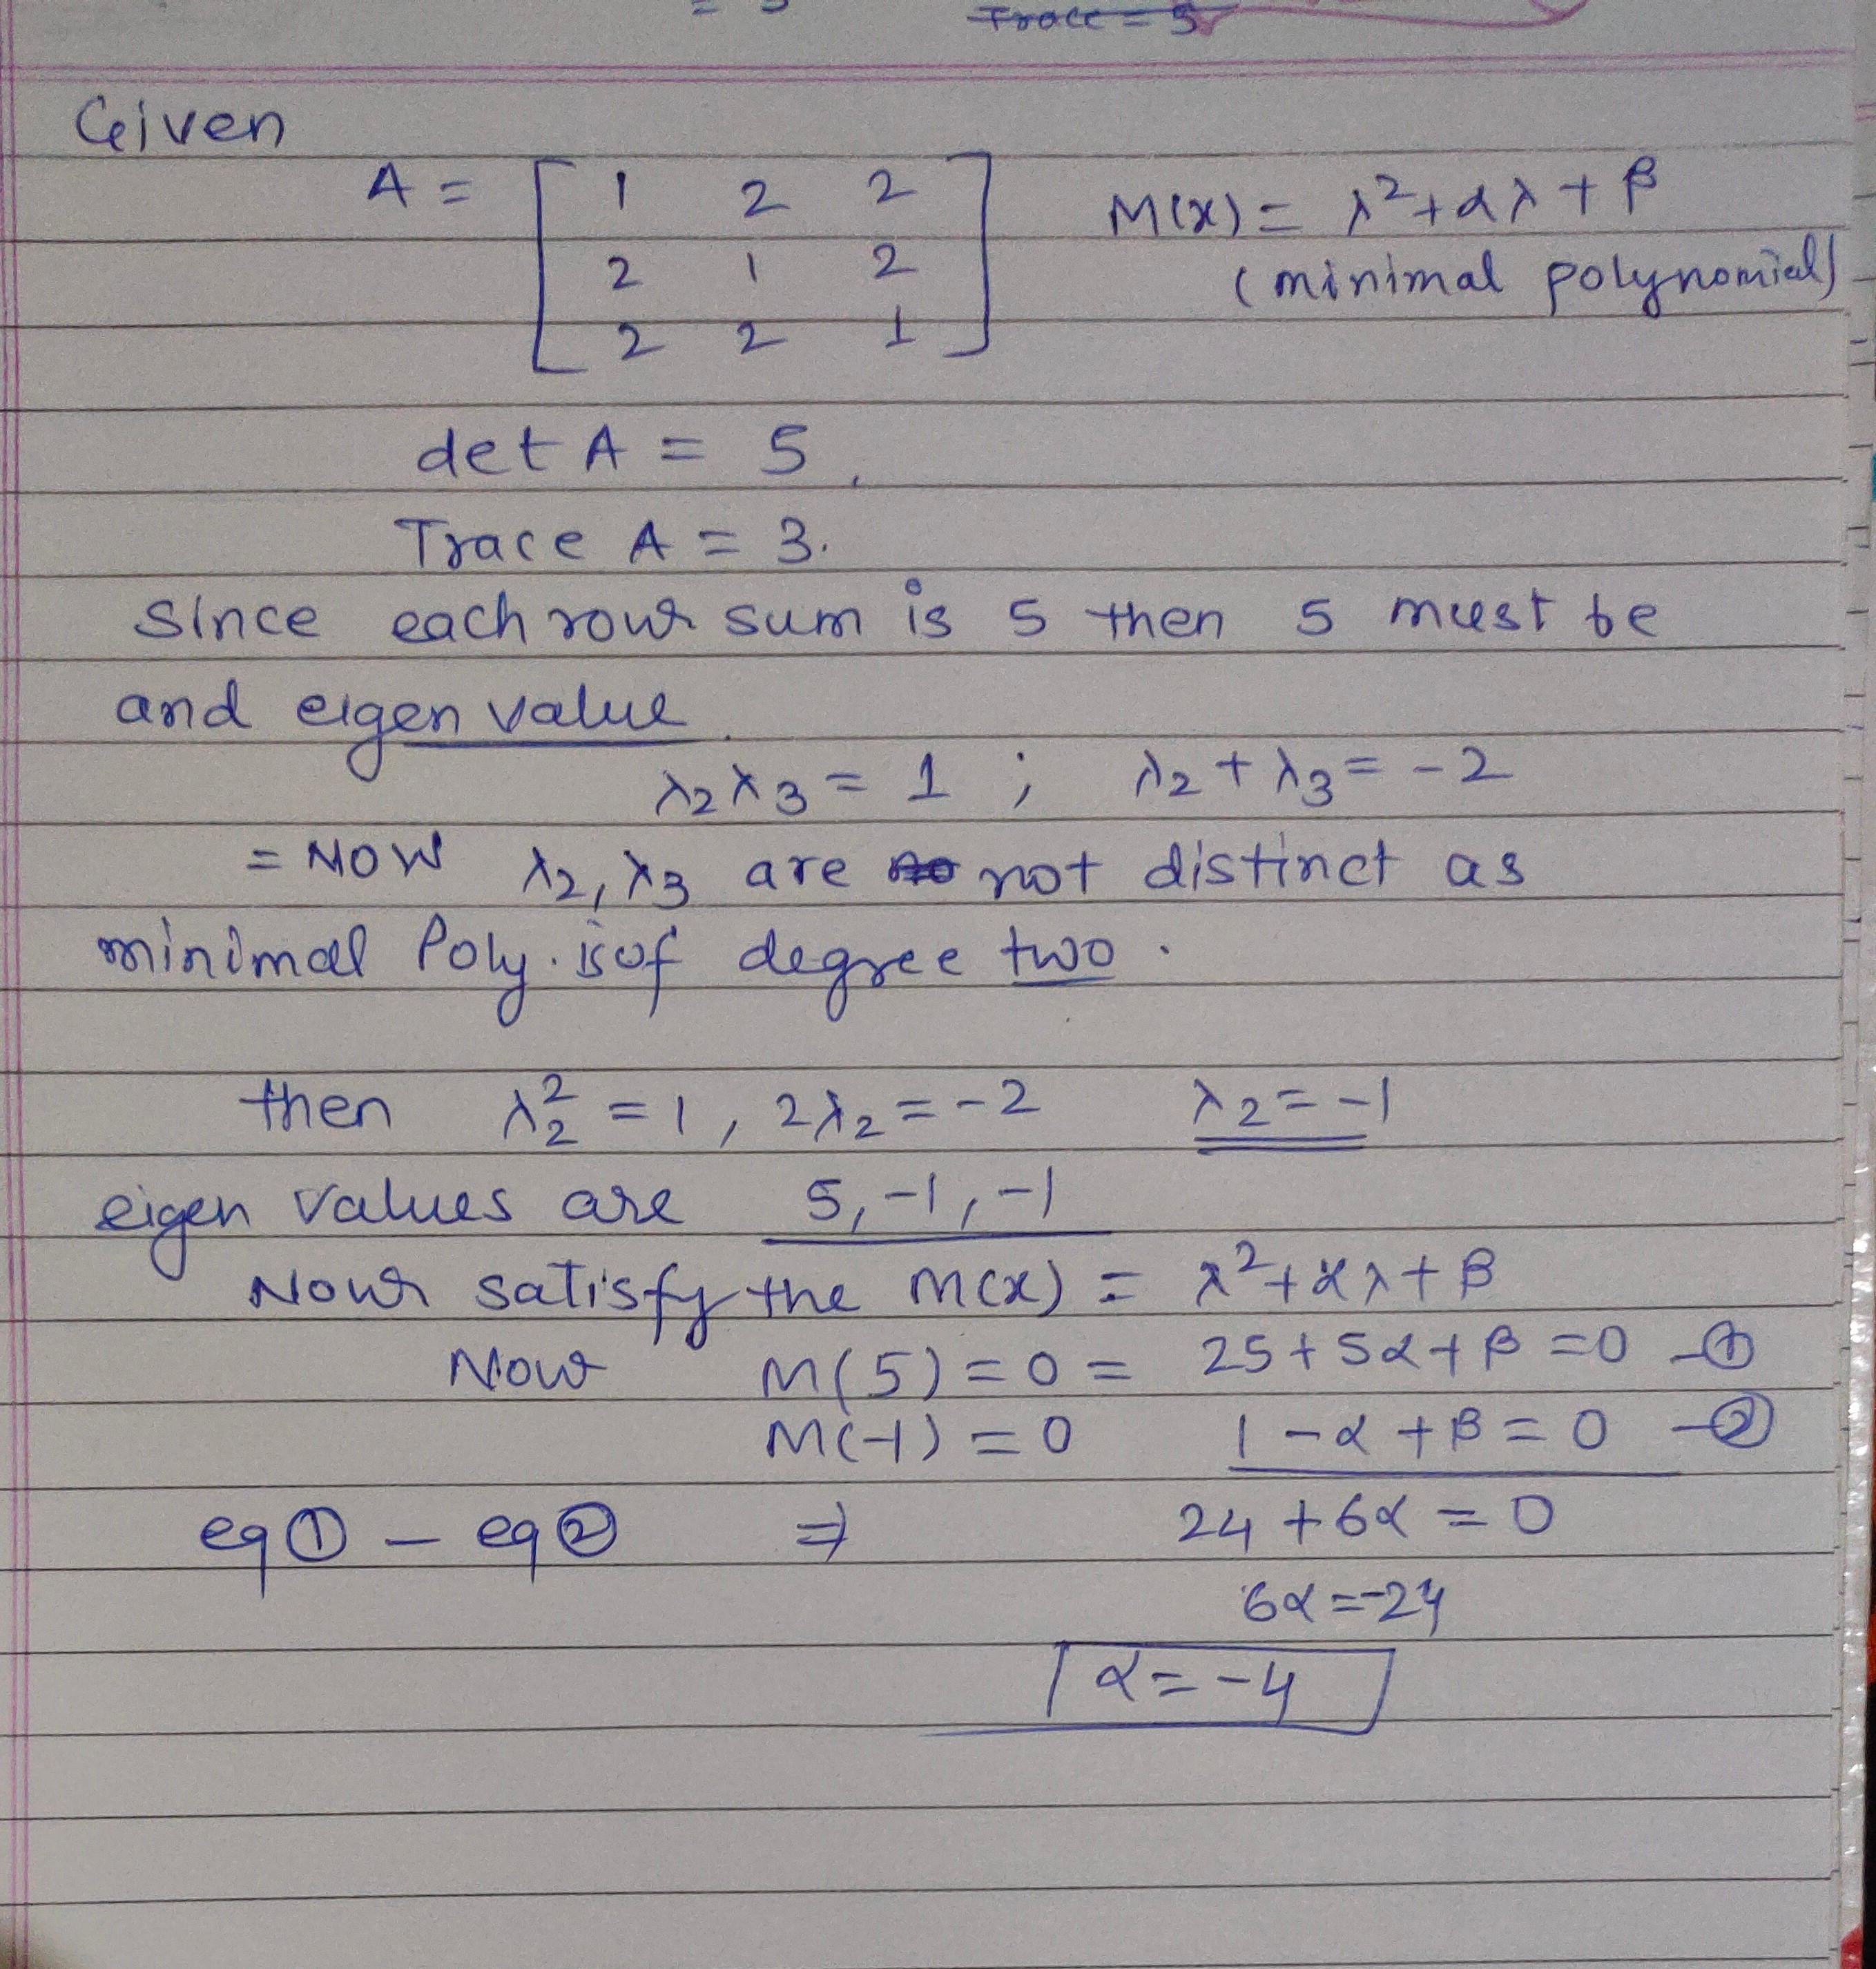 Trace = 5
Given
A = [ 1 2 2 M(x) = λ²+αλ+β
2 1 2 (minimal polynomial)
2 2 1 ]
det A = 5,
Trace A = 3.
since each row sum is 5 then 5 must be
and eigen value.
λ₂λ₃ = 1 ; λ₂+λ₃ = -2
= NOW λ₂, λ₃ are not distinct as
minimal Poly. is of degree two.
then λ₂² = 1, 2λ₂ = -2 λ₂ = -1
eigen values are 5, -1, -1
Now satisfy the m(x) = λ²+αλ+β
Now M(5) = 0 = 25+5α+β = 0 -①
M(-1) = 0 1-α+β = 0 -②
eq ① - eq ② ⇒ 24+6α = 0
6α = -24
α = -4